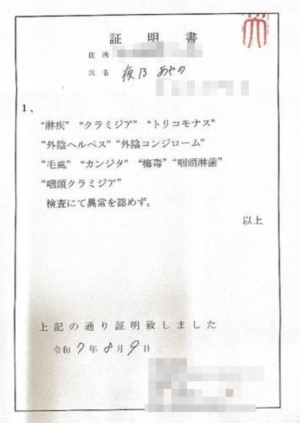 証明書
住所
氏名 疲乃 あやの
1、
“淋疾” “クラミジア” “トリコモナス”
“外陰ヘルペス” “外陰コンジローム”
“毛虱” “カンジタ” “梅毒” “咽頭淋菌”
“咽頭クラミジア”
検査にて異常を認めず。
以上
上記の通り証明致しました
令和7年8月9日